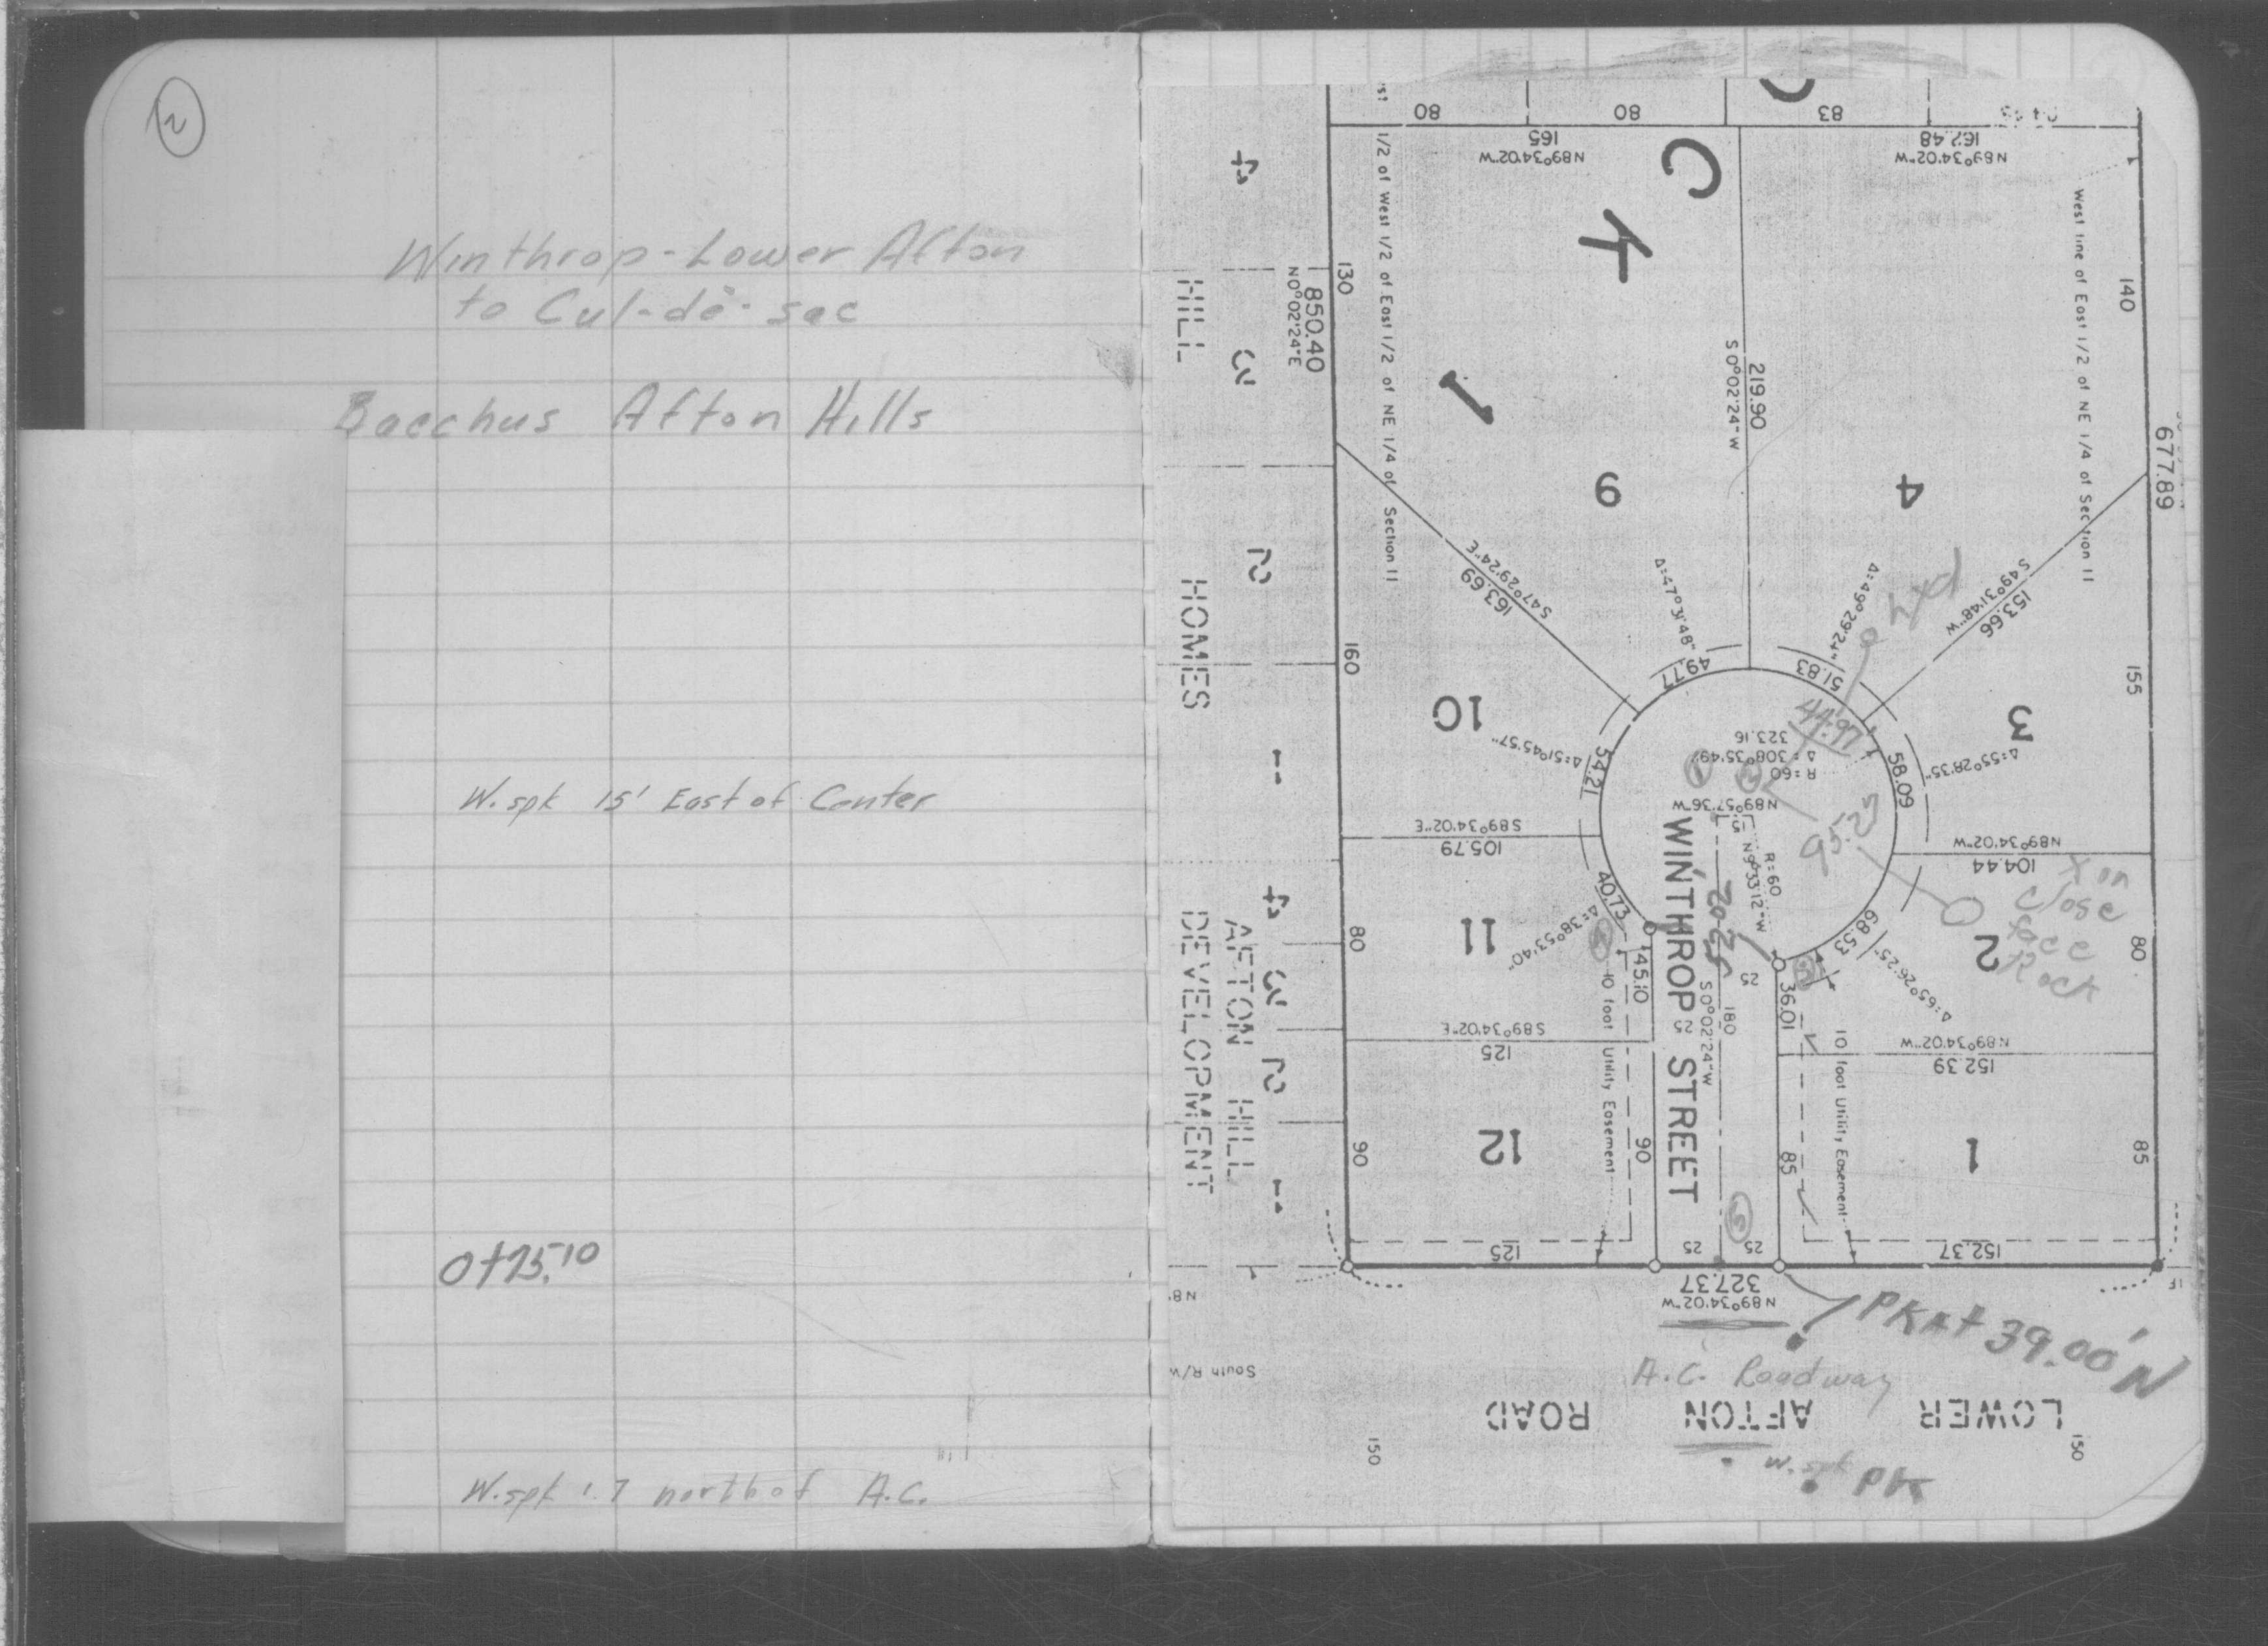 2
Winthrop-Lower Afton
to Cul-de-sac
Bacchus Afton Hills
W.spk 15' East of Center
0+75.10
W.spk 1.7 north of A.C.
80
80
83
165
N89°34'02"W
162.48
N89°34'02"W
C
K
1
4
3
2
1
HILL
HOMES
850.40
N0°02'24"E
130
1/2 of West 1/2 of East 1/2 of NE 1/4 of Section 11
West line of East 1/2 of NE 1/4 of Section 11
140
677.89
219.90
S0°02'24"W
9
4
163.69
S47°29'24"E
153.66
S49°31'48"W
Δ=47°31'48"
Δ=49°29'24"
hyd
49.77
51.83
160
155
10
3
Δ=51°45'57"
54.21
44.97
323.16
Δ=308°35'49"
R=60
58.09
Δ=55°28'35"
1
2
N89°57'36"W
5
S89°34'02"E
105.79
N89°34'02"W
104.44
95.23
R=60
N9°33'12"W
X in
close
face
Rock
40.73
Δ=38°53'40"
68.53
Δ=65°26'25"
11
2
80
80
4
3
2
1
AFTON HILL
DEVELOPMENT
WINTHROP STREET
45.10
36.01
25
25
180
S0°02'24"W
10 foot Utility Easement
10 foot Utility Easement
S89°34'02"E
125
N89°34'02"W
152.39
12
1
90
90
85
85
5
125
25
25
152.37
327.37
N89°34'02"W
IF
N8
PK At 39.00' N
South R/W
A.C. Roadway
LOWER AFTON ROAD
150
150
W.spk
PK